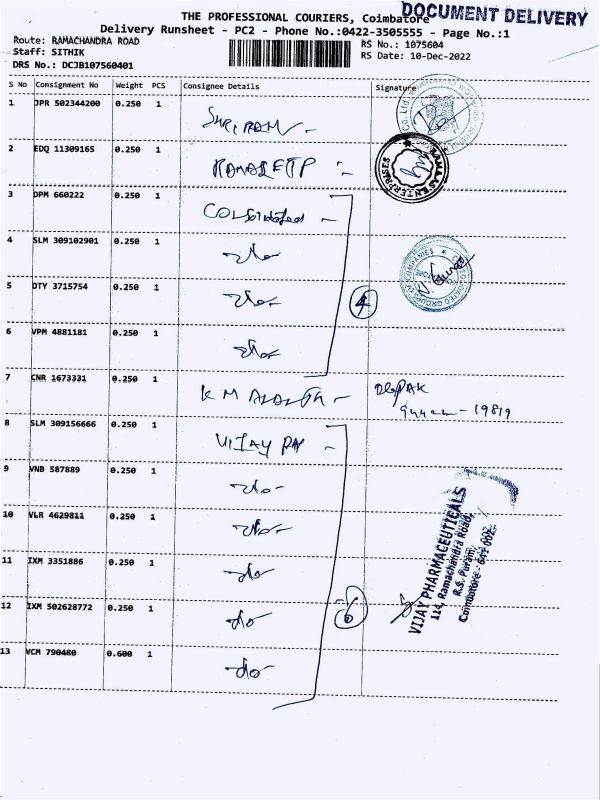 DOCUMENT DELIVERY
THE PROFESSIONAL COURIERS, Coimbatore
Delivery Runsheet - PC2 - Phone No.:0422-3505555 - Page No.:1
Route: RAMACHANDRA ROAD
Staff: SITHIK
DRS No.: DCJB107560401
RS No.: 1075604
RS Date: 10-Dec-2022
S No Consignment No Weight PCS Consignee Details Signature
1 JPR 502344200 0.250 1
2 EDQ 11309165 0.250 1
3 DPM 660222 0.250 1 Consolidated -
4 SLM 309102901 0.250 1 -do-
5 DTY 3715754 0.250 1 -do-
4
6 VPM 4881181 0.250 1 -do-
7 CNR 1673331 0.250 1 K M DEEPAK
19819
8 SLM 309156666 0.250 1 VIJAY PH -
9 VNB 587889 0.250 1 -do-
10 VLR 4629811 0.250 1 -do-
11 IXM 3351886 0.250 1 -do-
12 IXM 502628772 0.250 1 -do-
6
13 VCM 790480 0.600 1 -do-
ENTERPRISES
CONSOLIDATED GROUPS OF COMPANIES
VIJAY PHARMACEUTICALS
114, Ramachandra Road,
R.S. Puram,
Coimbatore - 641 002.